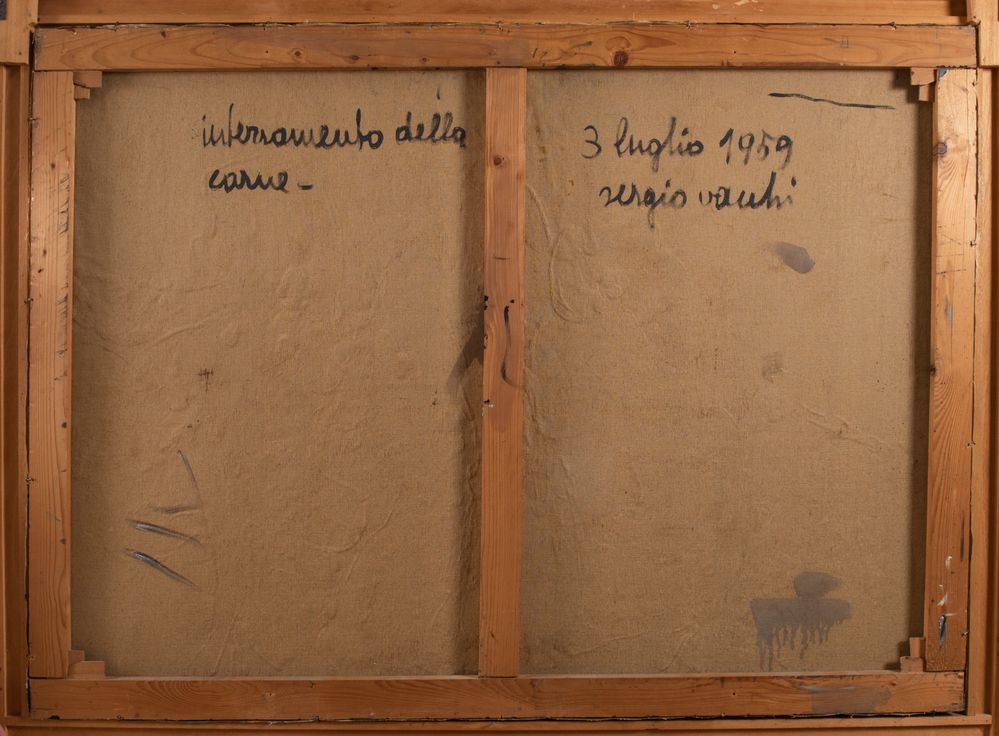 interramento della
carne -
3 luglio 1959
sergio vacchi